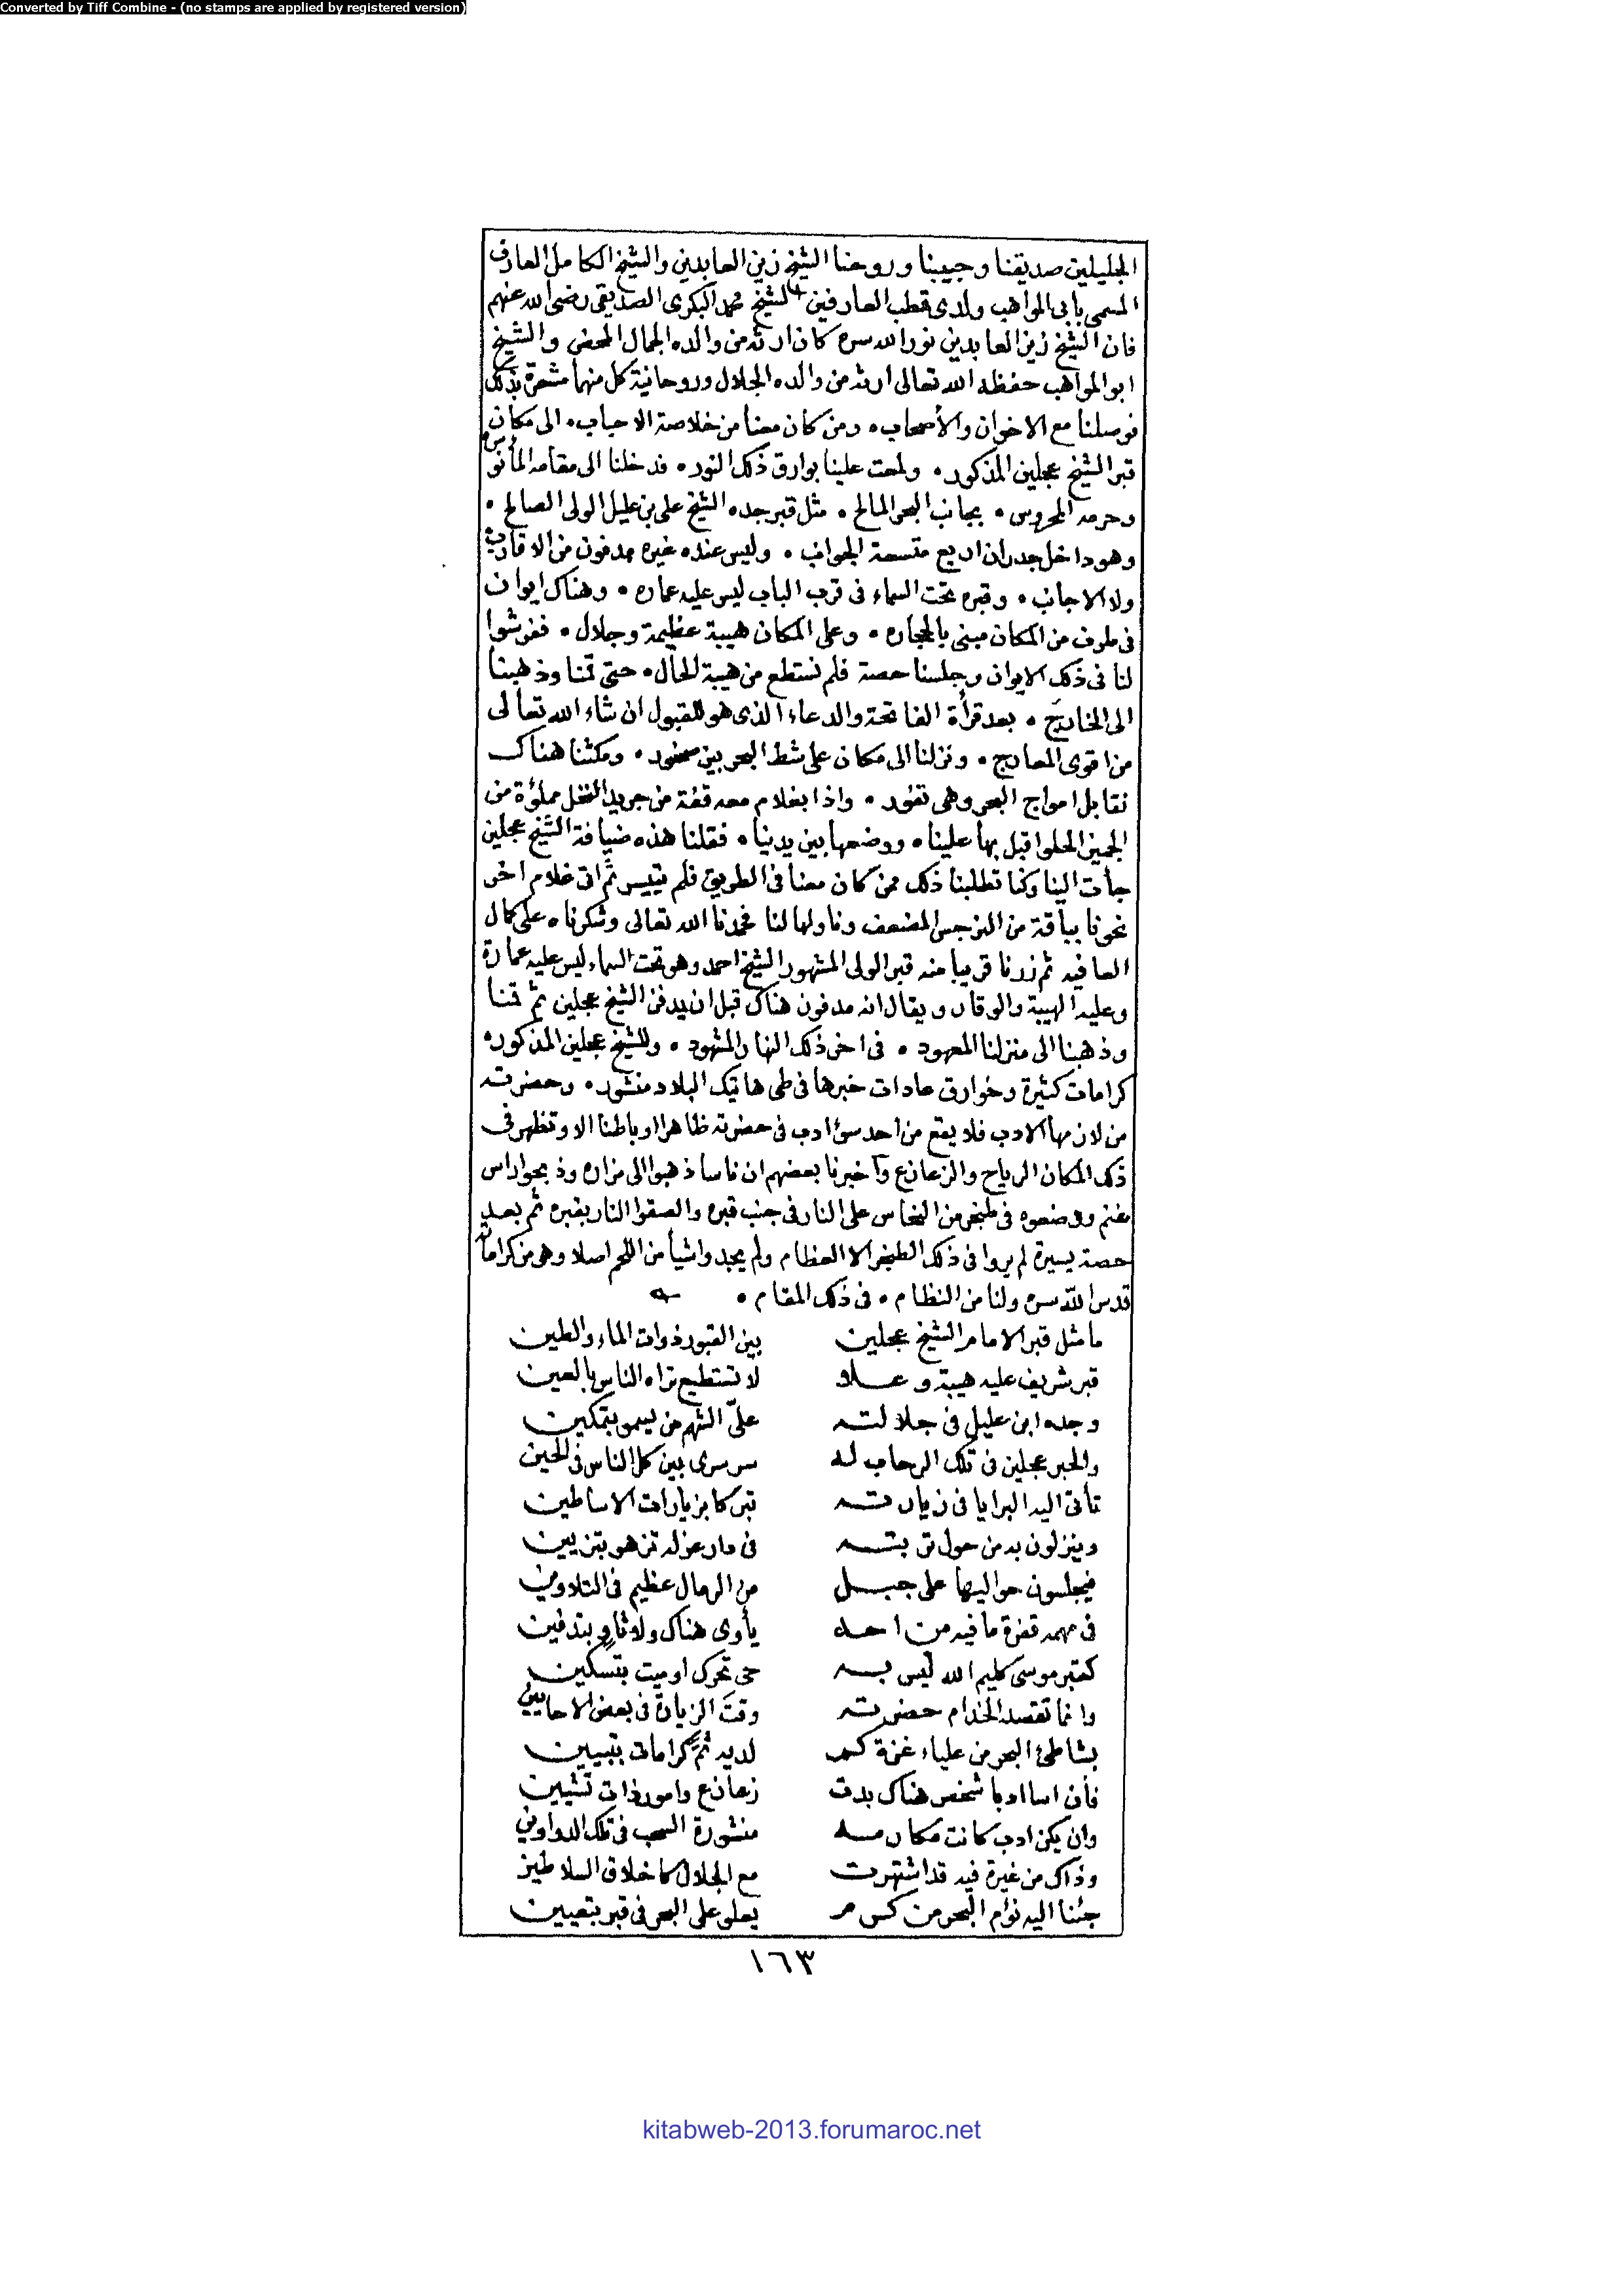 Converted by Tiff Combine - (no stamps are applied by registered version)
الجليلين صديقنا وحبيبنا وروحنا الشيخ زين العابدين والشيخ الكامل العارف
المسمى بابى المواهب ولدى قطب العارفين الشيخ محمد البكرى الصديقى رضى الله عنهم
فان الشيخ زين العابدين نور الله سره كان ارثه من والده الجمال المحض والشيخ
ابو المواهب حفظه الله تعالى ارثه من والده الجلال وروحانية كل منهما مشعرة بذلك
فوصلنا مع الاخوان والأصحاب • ومن كان معنا من خلاصة الاحباب • الى مكان
قبر الشيخ عجلين المذكور • ولمعت علينا بوارق ذلك النور • فدخلنا الى مقامه المأنوس
وحرمه المحروس • بجانب البحر المالح • مثل قبر جده الشيخ على بن عليل الولى الصالح •
وهو داخل جدران اربع متسعة الجوانب • وليس عنده غيره مدفون من الاقارب
ولا الاجانب • وقبره تحت السماء فى قرب الباب ليس عليه عماره • وهناك ايوان
فى طرف من المكان مبنى بالحجاره • وعلى المكان هيبة عظيمة وجلال • ففرشوا
لنا فى ذلك الايوان وجلسنا حصة فلم نستطع من هيبة الحال • حتى قمنا وذهبنا
الى الخارج • بعد قرأة الفاتحة والدعاء الذى هو للقبول ان شاء الله تعالى
من اقوى المعارج • ونزلنا الى مكان على شط البحر بين صخور • ومكثنا هناك
نقابل امواج البحر وهى تفور • واذا بغلام معه قفة من جريد النخل مملؤة من
الجميز الحلو اقبل بها علينا • ووضعها بين يدينا • فقلنا هذه ضيافة الشيخ عجلين
جأت الينا وكنا تطلبنا ذلك ممن كان معنا فى الطريق فلم يتيسر ثم اتى غلام اخر
نحونا بباقة من النرجس المضعف وناولها لنا فحمدنا الله تعالى وشكرناه على كمال
العافيه ثم زرنا قريبا منه قبر الولى المشهور الشيخ احمد وهو تحت السماء ليس عليه عمارة
وعليه الهيبة والوقار ويقال انه مدفون هناك قبل ان يدفن الشيخ عجلين ثم قمنا
وذهبنا الى منزلنا المعهود • فى اخر ذلك النهار المشهود • وللشيخ عجلين المذكور •
كرامات كثيرة وخوارق عادات خبرها فى طى هاتيك البلاد منشور • وحضرته
من لازمها الادب فلا يقع من احد سؤ ادب فى حضرته ظاهرا او باطنا الا وتظهر فى
ذلك المكان الرياح والزعازع واخبرنا بعضهم ان ناسا ذهبوا الى مزاره وذبحوا راس
غنم ووضعوه فى طنجر من النحاس على النار فى جنب قبره والصقوا النار بقبره ثم بعد
حصة يسيرة لم يروا فى ذلك الطنجر الا العظام ولم يجدوا شيأ من اللحم اصلا وهو من كراماته
قدس الله سره ولنا من النظام • فى ذلك المقام •
ما مثل قبر الامام الشيخ عجلين بين القبور ذوات الماء والطين
قبر شريف عليه هيبة وعلا لا تستطيع تراه الناس بالعين
وجده ابن عليل فى جلالته علىّ الشهم من يسمو بتمكين
والحبر عجلين فى تلك الرحاب له سر سرى بين كل الناس فى الحين
تأتى اليه البرايا فى زيارته تبركا بزيارات الاساطين
وينزلون به من حول تربته فى دار عز له تزهو بتزيين
فيجلسون حواليها على جبل من الرمال عظيم فى التلاوين
فى مهمه قفرة ما فيه من احد يأوى هناك ولا ثاوٍ بتدفين
كقبر موسى كليم الله ليس به حى تحرك او ميت بتسكين
وانما تقصد الخدام حضرته وقت الزيارة فى بعض الاحايين
بشاطئ البحر من علياء غزة كم لديه ثم كرامات بتبيين
فأن اسا ادبا شخص هناك بدت زعازع وامور ذات تشيين
وان يكن ادب كانت مكارمه منشورة السحب فى تلك الدواوين
وذاك من غيرة فيه قد اشتهرت مع الجلال كاخلاق السلاطين
جئنا اليه نؤم البحر من كرم يعلو على البحر فى قبر بتعيين
١٦٣
kitabweb-2013.forumaroc.net